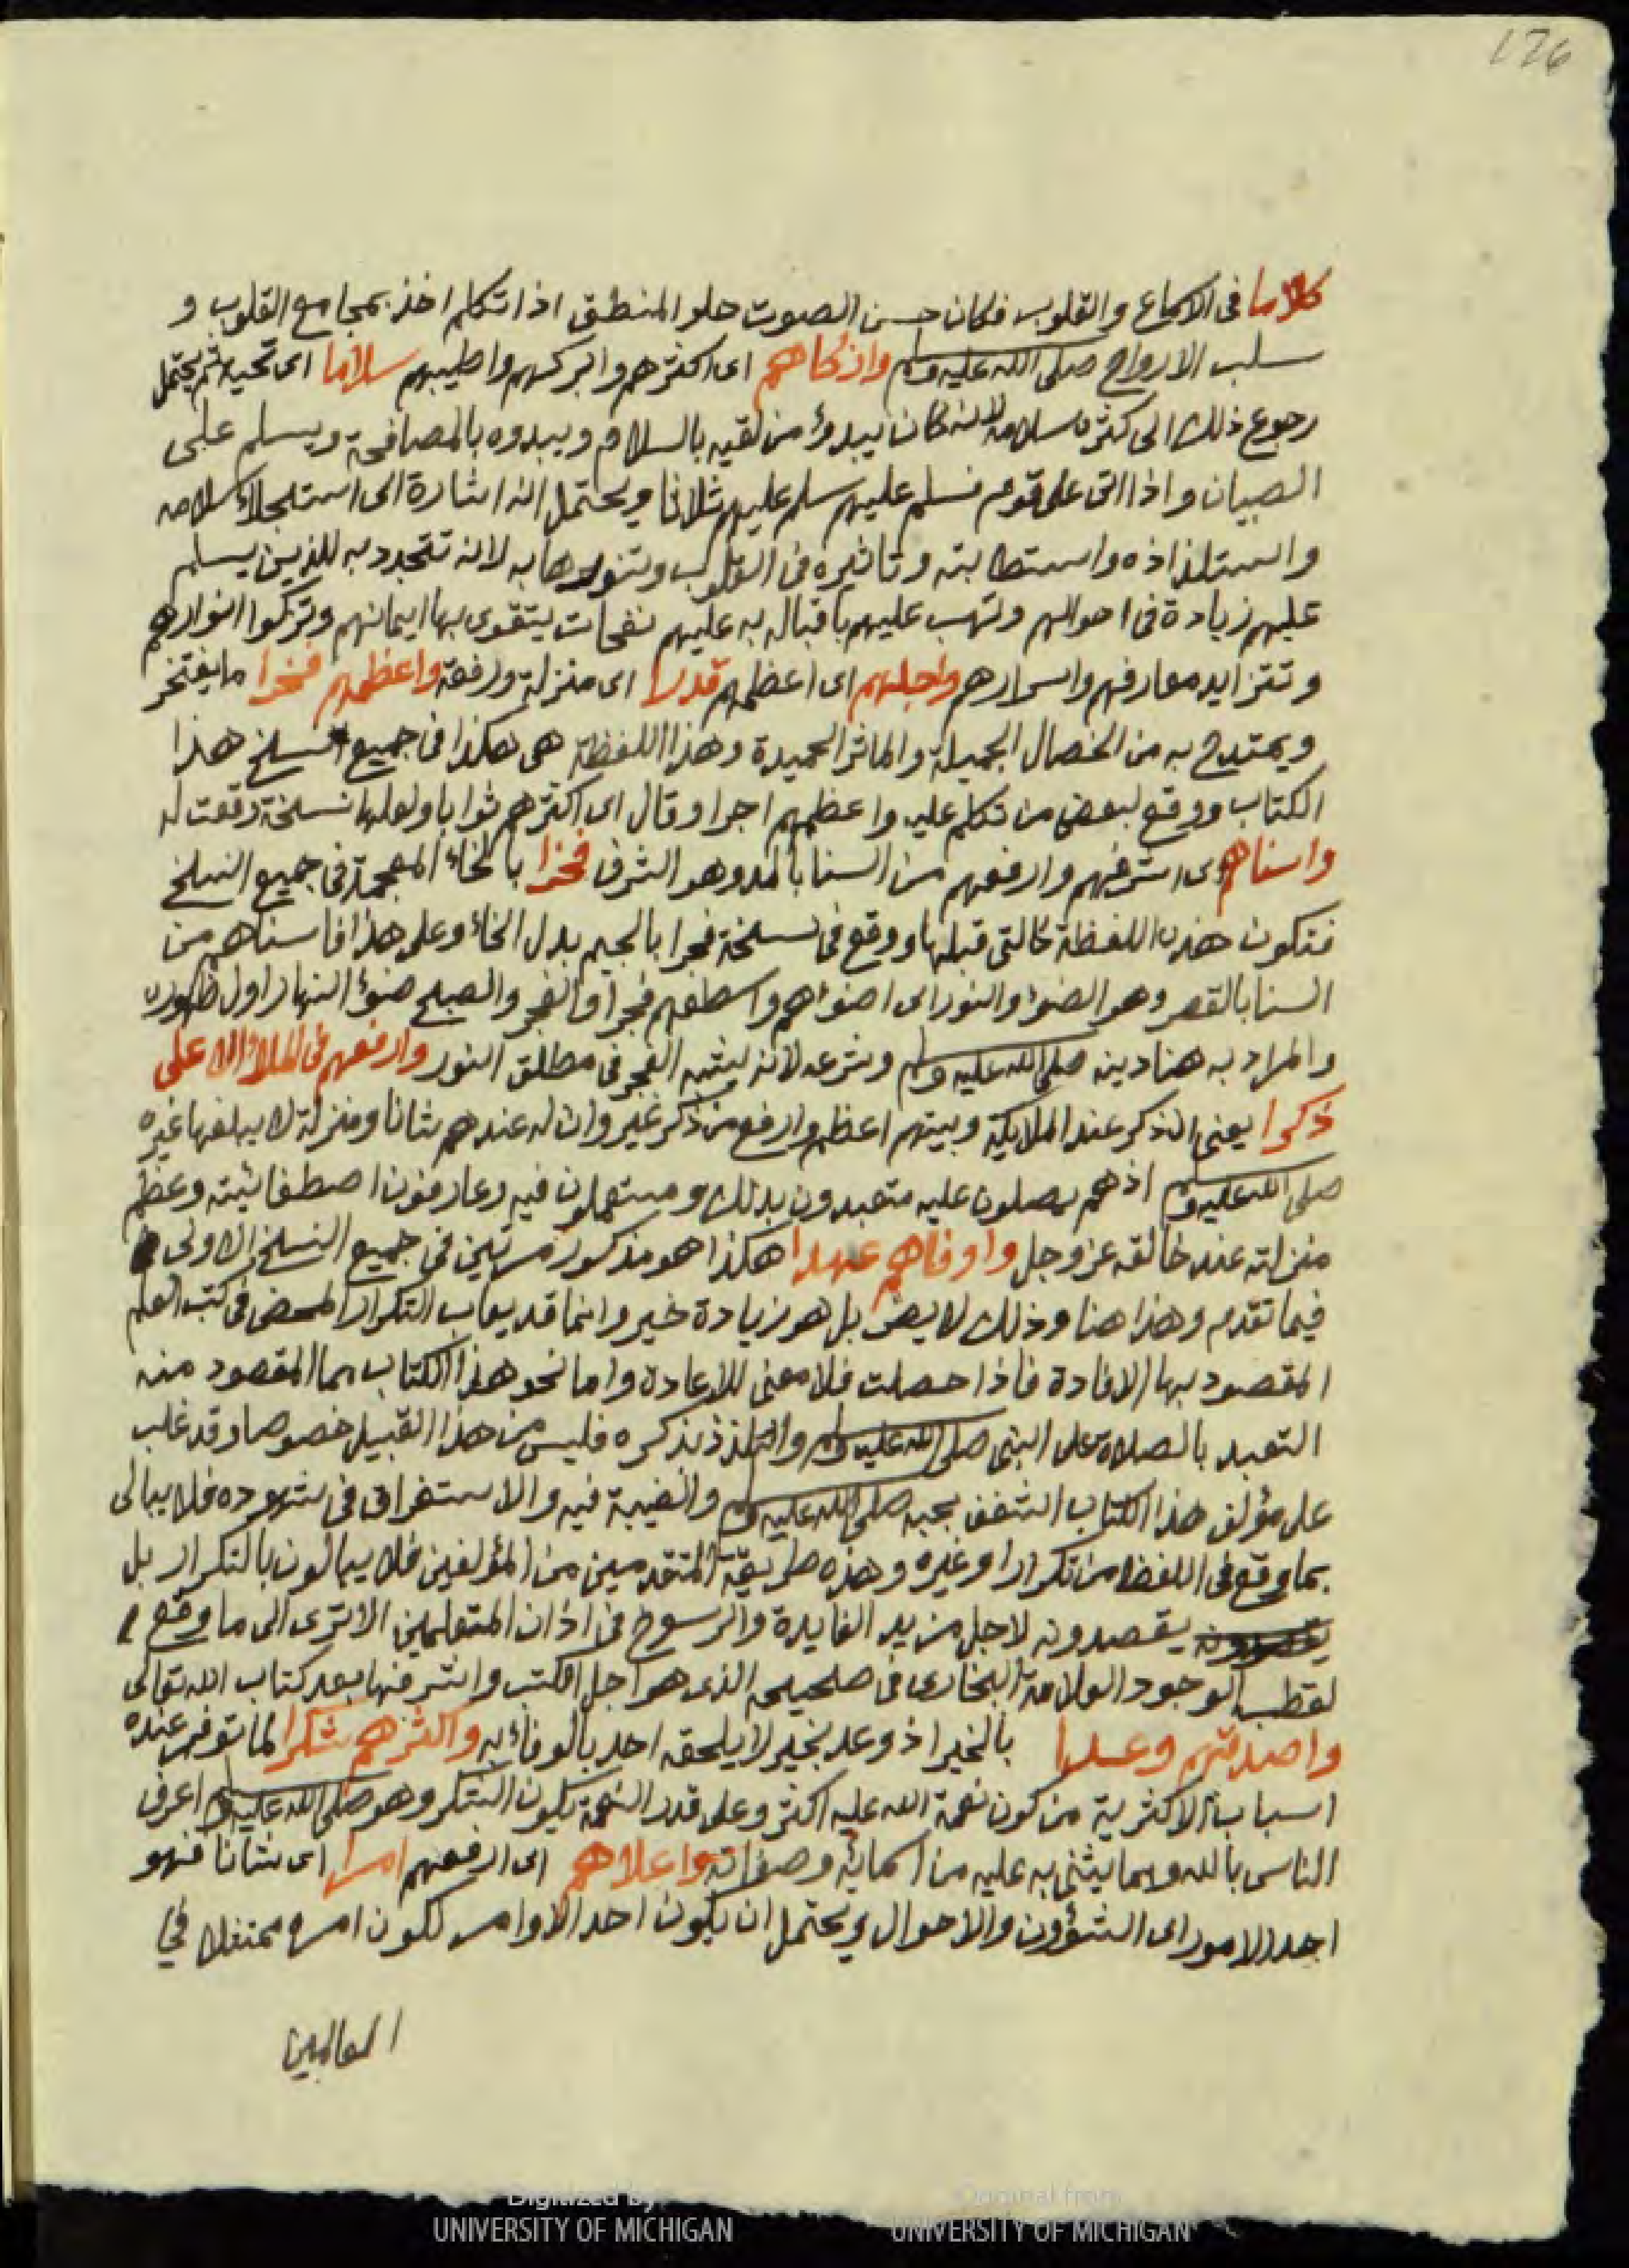 176
كلاما فى الاسماع والقلوب فكان حسن الصوت حلو المنطق اذا تكلم اخذ بمجامع القلوب و
سلب الارواح صلى الله عليه وسلم وازكاهم اى اكثرهم وابركهم واطيبهم سلاما اى تحية ثم يحتمل
رجوع ذلك الى كثرة سلامه لانه كان يبدؤ من لقيه بالسلام ويبدوه بالمصافحة ويسلم على
الصبيان واذا اتى على قوم فسلم عليهم سلم عليهم ثلاثا ويحتمل انه اشارة الى استجلاء سلامه
واستلذاذه واستطابته وتاثيره فى القلوب وتنورها به لانه تتجدد به للذين يسلم
عليهم زيادة فى احوالهم وتهب عليهم باقباله به عليهم نفحات يتقوى بها ايمانهم وتزكوا انوارهم
وتتزايد معارفهم واسرارهم واجلهم اى اعظمهم قدرا اى منزلة ورفعة واعظمهم فخرا ما يفتخر
ويمتدح به من الخصال الجميلة والماثر الحميدة وهذا اللفظة هى هكذا فى جميع نسخ هذا
الكتاب ووقع لبعض من تكلم عليه واعظمهم اجرا وقال اى اكثرهم ثوابا ولعلها نسخة وقعت له
واسناهم اى اشرفهم وارفعهم من السنا بالمد وهو الشرف فخرا بالخاء المعجمة فى جميع النسخ
فتكون هذه اللفظة كالتى قبلها ووقع فى نسخة فجرا بالجيم بدل الخاء وعلى هذا فاسناهم من
السنا بالقصر وهو الضوء والنور اى اضوءهم واسطعهم فجرا والفجر والصبح ضوء النهار اول ظهوره
والمراد به هنا دينه صلى الله عليه وسلم وشرعه لانه يشبه الفجر فى مطلق النور وارفعهم فى الملاء الاعلى
ذكرا يعنى ان ذكر عند الملايكة وبيتهم اعظم وارفع من ذكر غيره وان له عندهم شانا ومنزلة لا يبلغها غيره
صلى الله عليه وسلم اذ هم يصلون عليه متعبدون بذلك ومستعملون فيه وعارفون اصطفائيته وعظم
منزلته عند خالقه عز وجل واوفاهم عهدا هكذا هو مذكور مرتين فى جميع النسخ الاولى
فيما تقدم وهذا هنا وذلك لا يضر بل هو زيادة خير وانما قد يعاب التكرار المحض فى كتب العلم
المقصود بها الافادة فاذا حصلت فلا معنى للاعادة واما نحو هذا الكتاب مما المقصود منه
التعبد بالصلاة على النبى صلى الله عليه وسلم والتلذذ بذكره فليس من هذا القبيل خصوصا وقد غلب
على مؤلف هذا الكتاب الشغف بحبه صلى الله عليه وسلم والغيبة فيه والاستغراق فى شهوده فلا يبالى
بما وقع فى اللفظ من تكرار او غيره وهذه طريقة المتقدمين من المؤلفين فلا يبالون بالتكرار بل
يقصدونه لاجل مزيد الفايدة والرسوخ فى اذان المتعلمين الا ترى الى ما وقع
لقطب الوجود العلامة البخارى فى صحيحه الذى هو اجل الكتب واشرفها بعد كتاب الله تعالى
واصدقهم وعدا بالخير اذ وعد بخير لا يلحقه احد بالوفاء به واكثرهم شكرا لما توفر عنده
اسباب الاكثرية من كون نعمة الله عليه اكثر وعلى قدر النعمة يكون الشكر وهو صلى الله عليه وسلم اعرف
الناس بالله وبما يثنى به عليه من اسمائه وصفاته واعلاهم اى ارفعهم امرا اى شانا فهو
احد الامور اى الشؤون والاحوال ويحتمل ان يكون احد الاوامر لكون امره ممتثلا في
العالمين
Digitized by
UNIVERSITY OF MICHIGAN
Original from
UNIVERSITY OF MICHIGAN